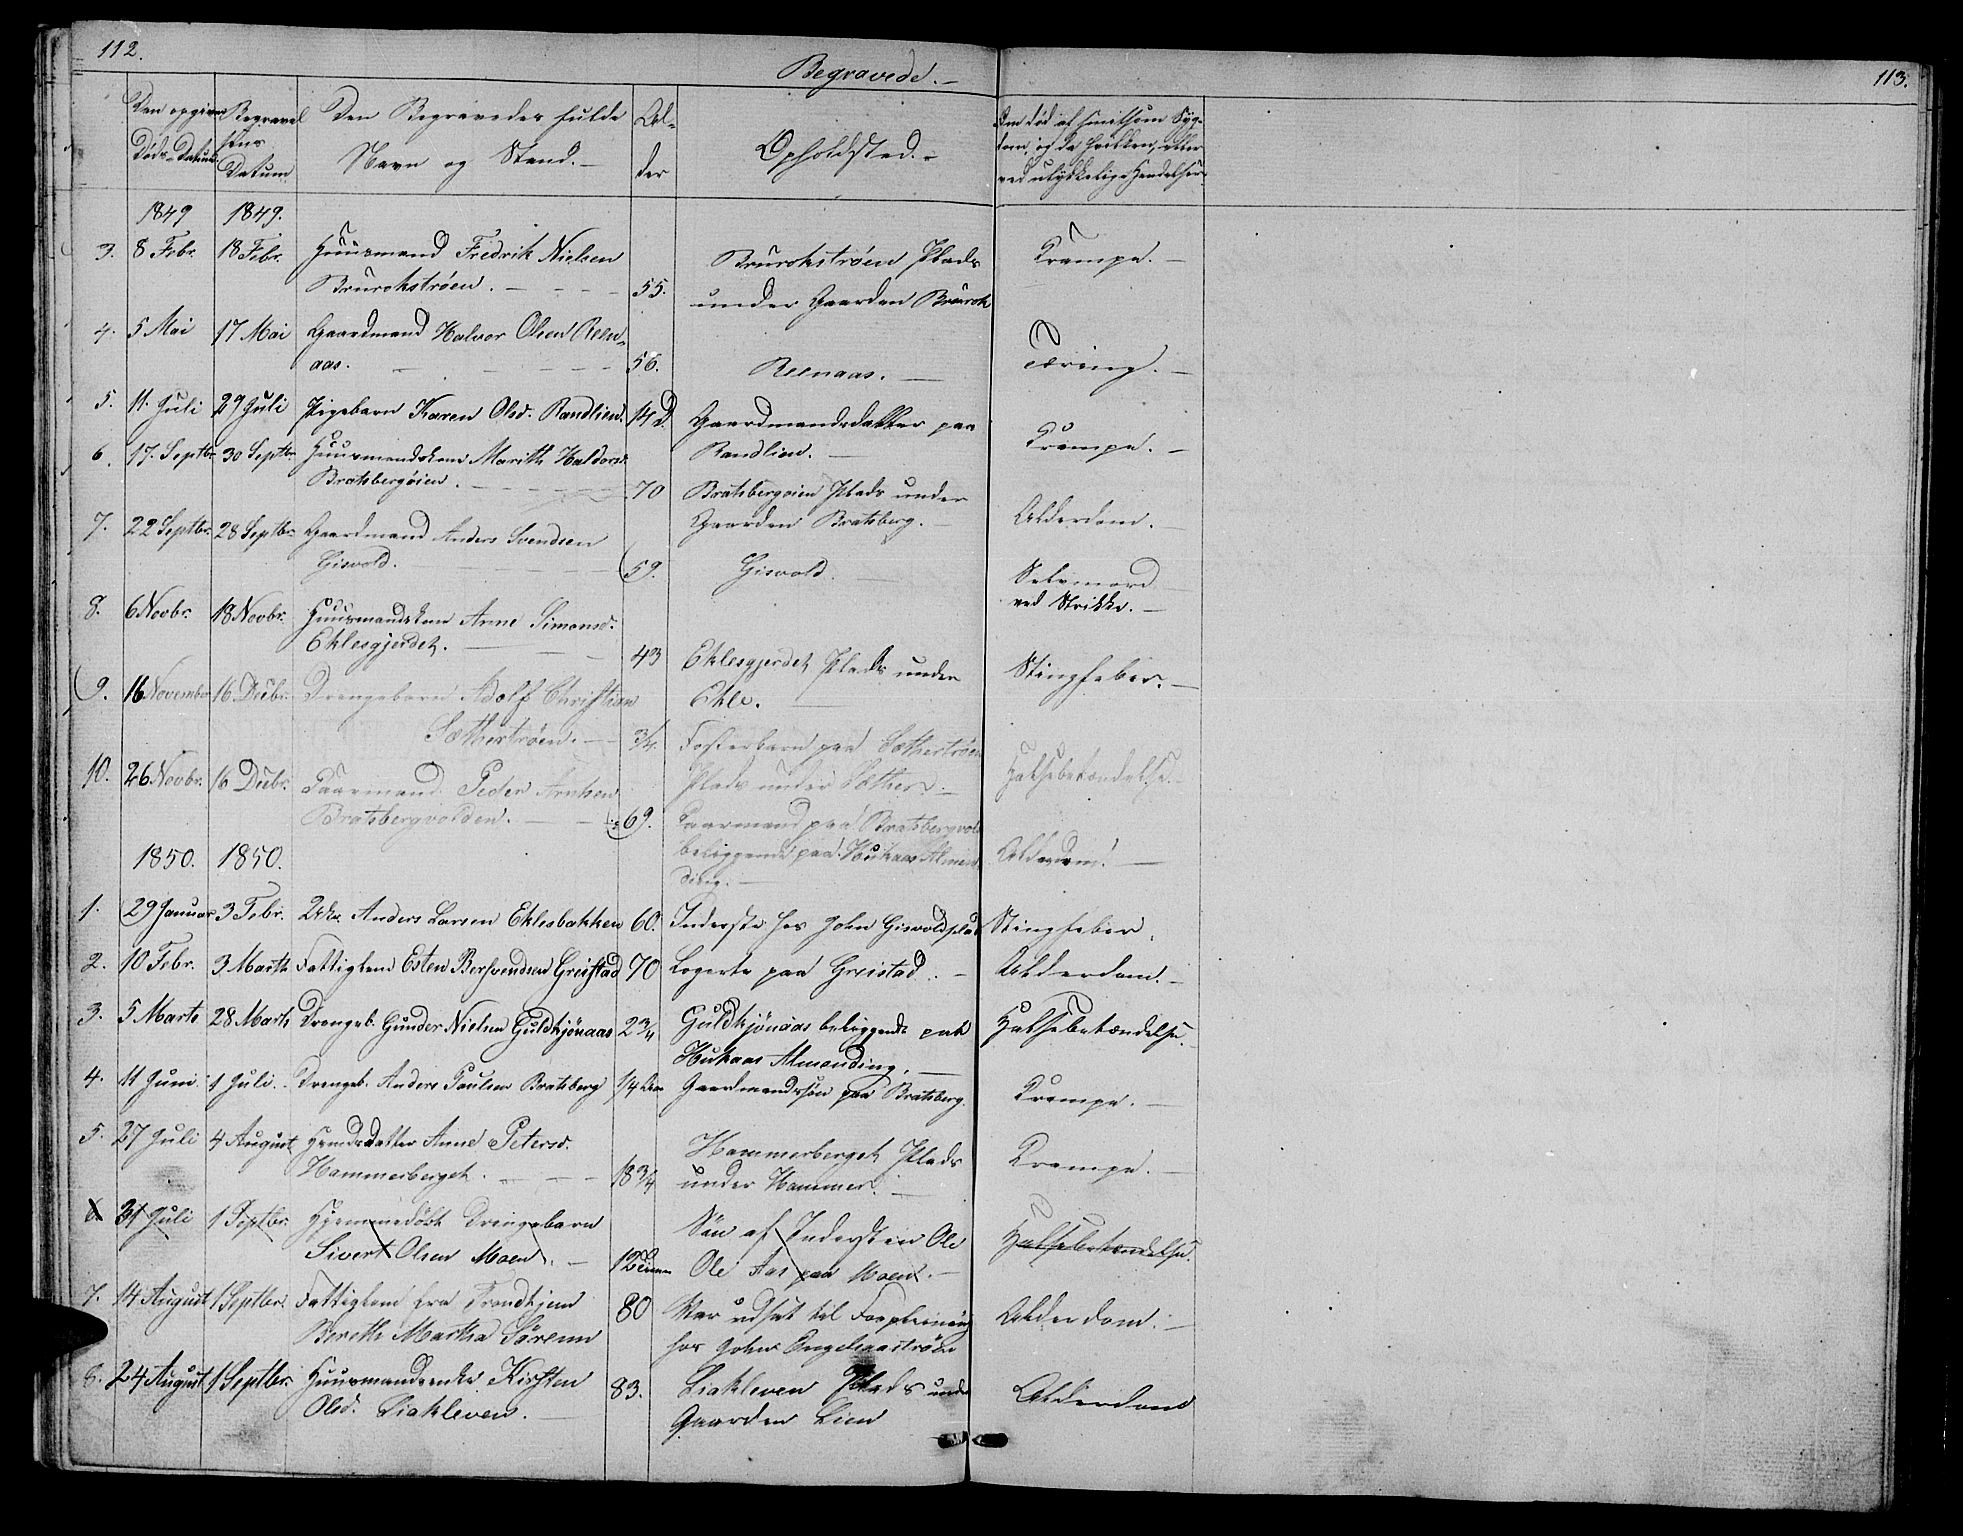 112.
Begravede.-
113.
Den opgivne Døds-Datum
Begravelsens Datum
Den Begravedes fulde Navn og Stand.-
Alder
Opholdsted.-
Om død af smitsom Sygdom, og da hvilken, eller ved ulykkelig Hændelse.
1849 1849.
3. 8 Febr. 18 Febr. Huusmand Fredrik Nielsen
Brurokstrøen. 55. Brurokstrøen Plads
under Gaarden Brurok
Krampe.-
4. 5 Mai 17 Mai Gaardmand Halvor Olsen Reen-
aas. 56. Reenaas. Tæring.-
5. 11. Juli 29 Juli Pigebarn Karen Olsd. Randlien. 14 D. Gaardmandsdatter paa
Randlien. Krampe.-
6. 17. Septbr. 30 Septbr. Huusmandskone Marith Haldorsd.
Bratsbergøien. 70 Bratsbergøien Plads under
Gaarden Bratsberg.- Alderdom.-
7. 22 Septbr. 28 Septbr. Gaardmand Anders Svendsen
Gisvold. 59. Gisvold. Selvmord
ved Strikke.-
8. 6 Novbr. 18 Novbr. Huusmandskone Anne Simonsd.
Eklesgjerdet. 43 Eklesgjerdet Plads under
Ekle. Stingfeber.-
9. 16 November 16 Decbr. Drengebarn Adolf Christian
Sætherstrøen.- 3/4. Fosterbarn paa Sætherstrøen
Plads under Sæther.- Halsebetændelse.-
10. 26 Novbr. 16 Decbr. Peder Arntsen
Bratsbergvolden. 69. paa Bratsbergvold
beliggende paa Hukaas Almen-
ding.- Alderdom.
1850. 1850.
1. 29 Januar 3 Febr. Anders Larsen Eklesbakken 60. Inderste hos John Gisvoldplads Stingfeber.
2. 10 Febr. 3 Marth Fattiglem Esten Bersvendsen Greistad 70 Logerte paa Greistad.- Alderdom.-
3. 5 Marts 28 Marts Drengeb. Gunder Nielsen Guldkjønaas 2 3/4 Guldkjønaas beliggende paa
Hukaas Almending. Halsebetændelse.
4. 11 Juni 1 Juli. Drengeb. Anders Paulsen Bratsberg 14 Gaardmandssøn paa Bratsberg. Krampe.-
5. 27 Juli 4 August Anne Petersd.
Hammerberget. 18 3/4 Hammerberget Plads
under Hammer. Krampe.-
6. 31 Juli 1 Septbr. Hjemmedøbt Drengebarn
Sivert Olsen Moen.- 12 Søn af Inderst Ole
Ole Aas paa Moen.- Halsebetændelse.
7. 14 August 1 Septbr. Fattiglem fra Trondhjem
Bereth Martha Sørenn 80 War udsat til Forpleining
hos John Engelsaastrøen Alderdom.-
8. 24 August 1 Septbr. Huusmandsenke Kirsten
Olsd. Liakleven. 83. Liakleven Plads under
Gaarden Lien Alderdom